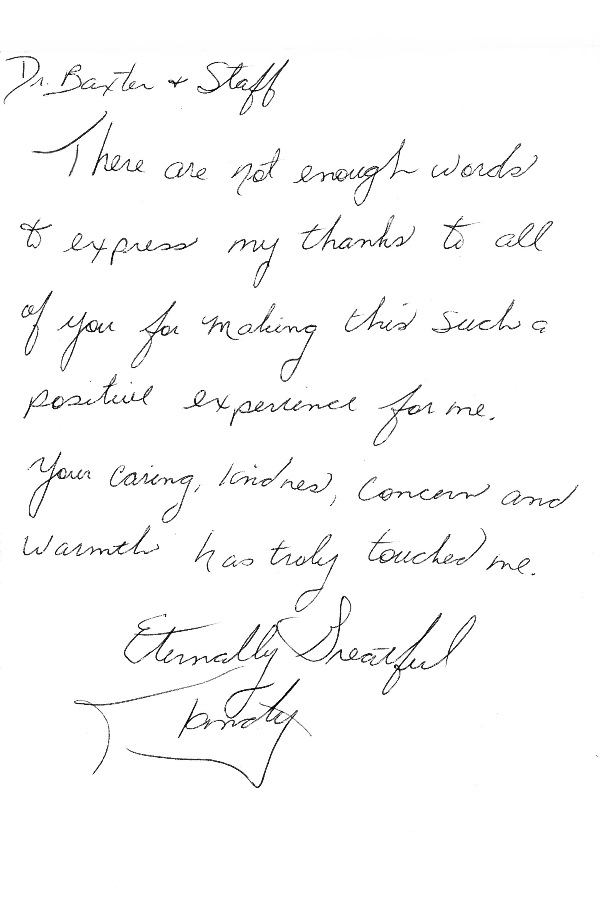 Dr. Baxter + Staff
There are not enough words
to express my thanks to all
of you for making this such a
positive experience for me.
Your caring, kindness, concern and
warmth has truly touched me.
Eternally Greatful